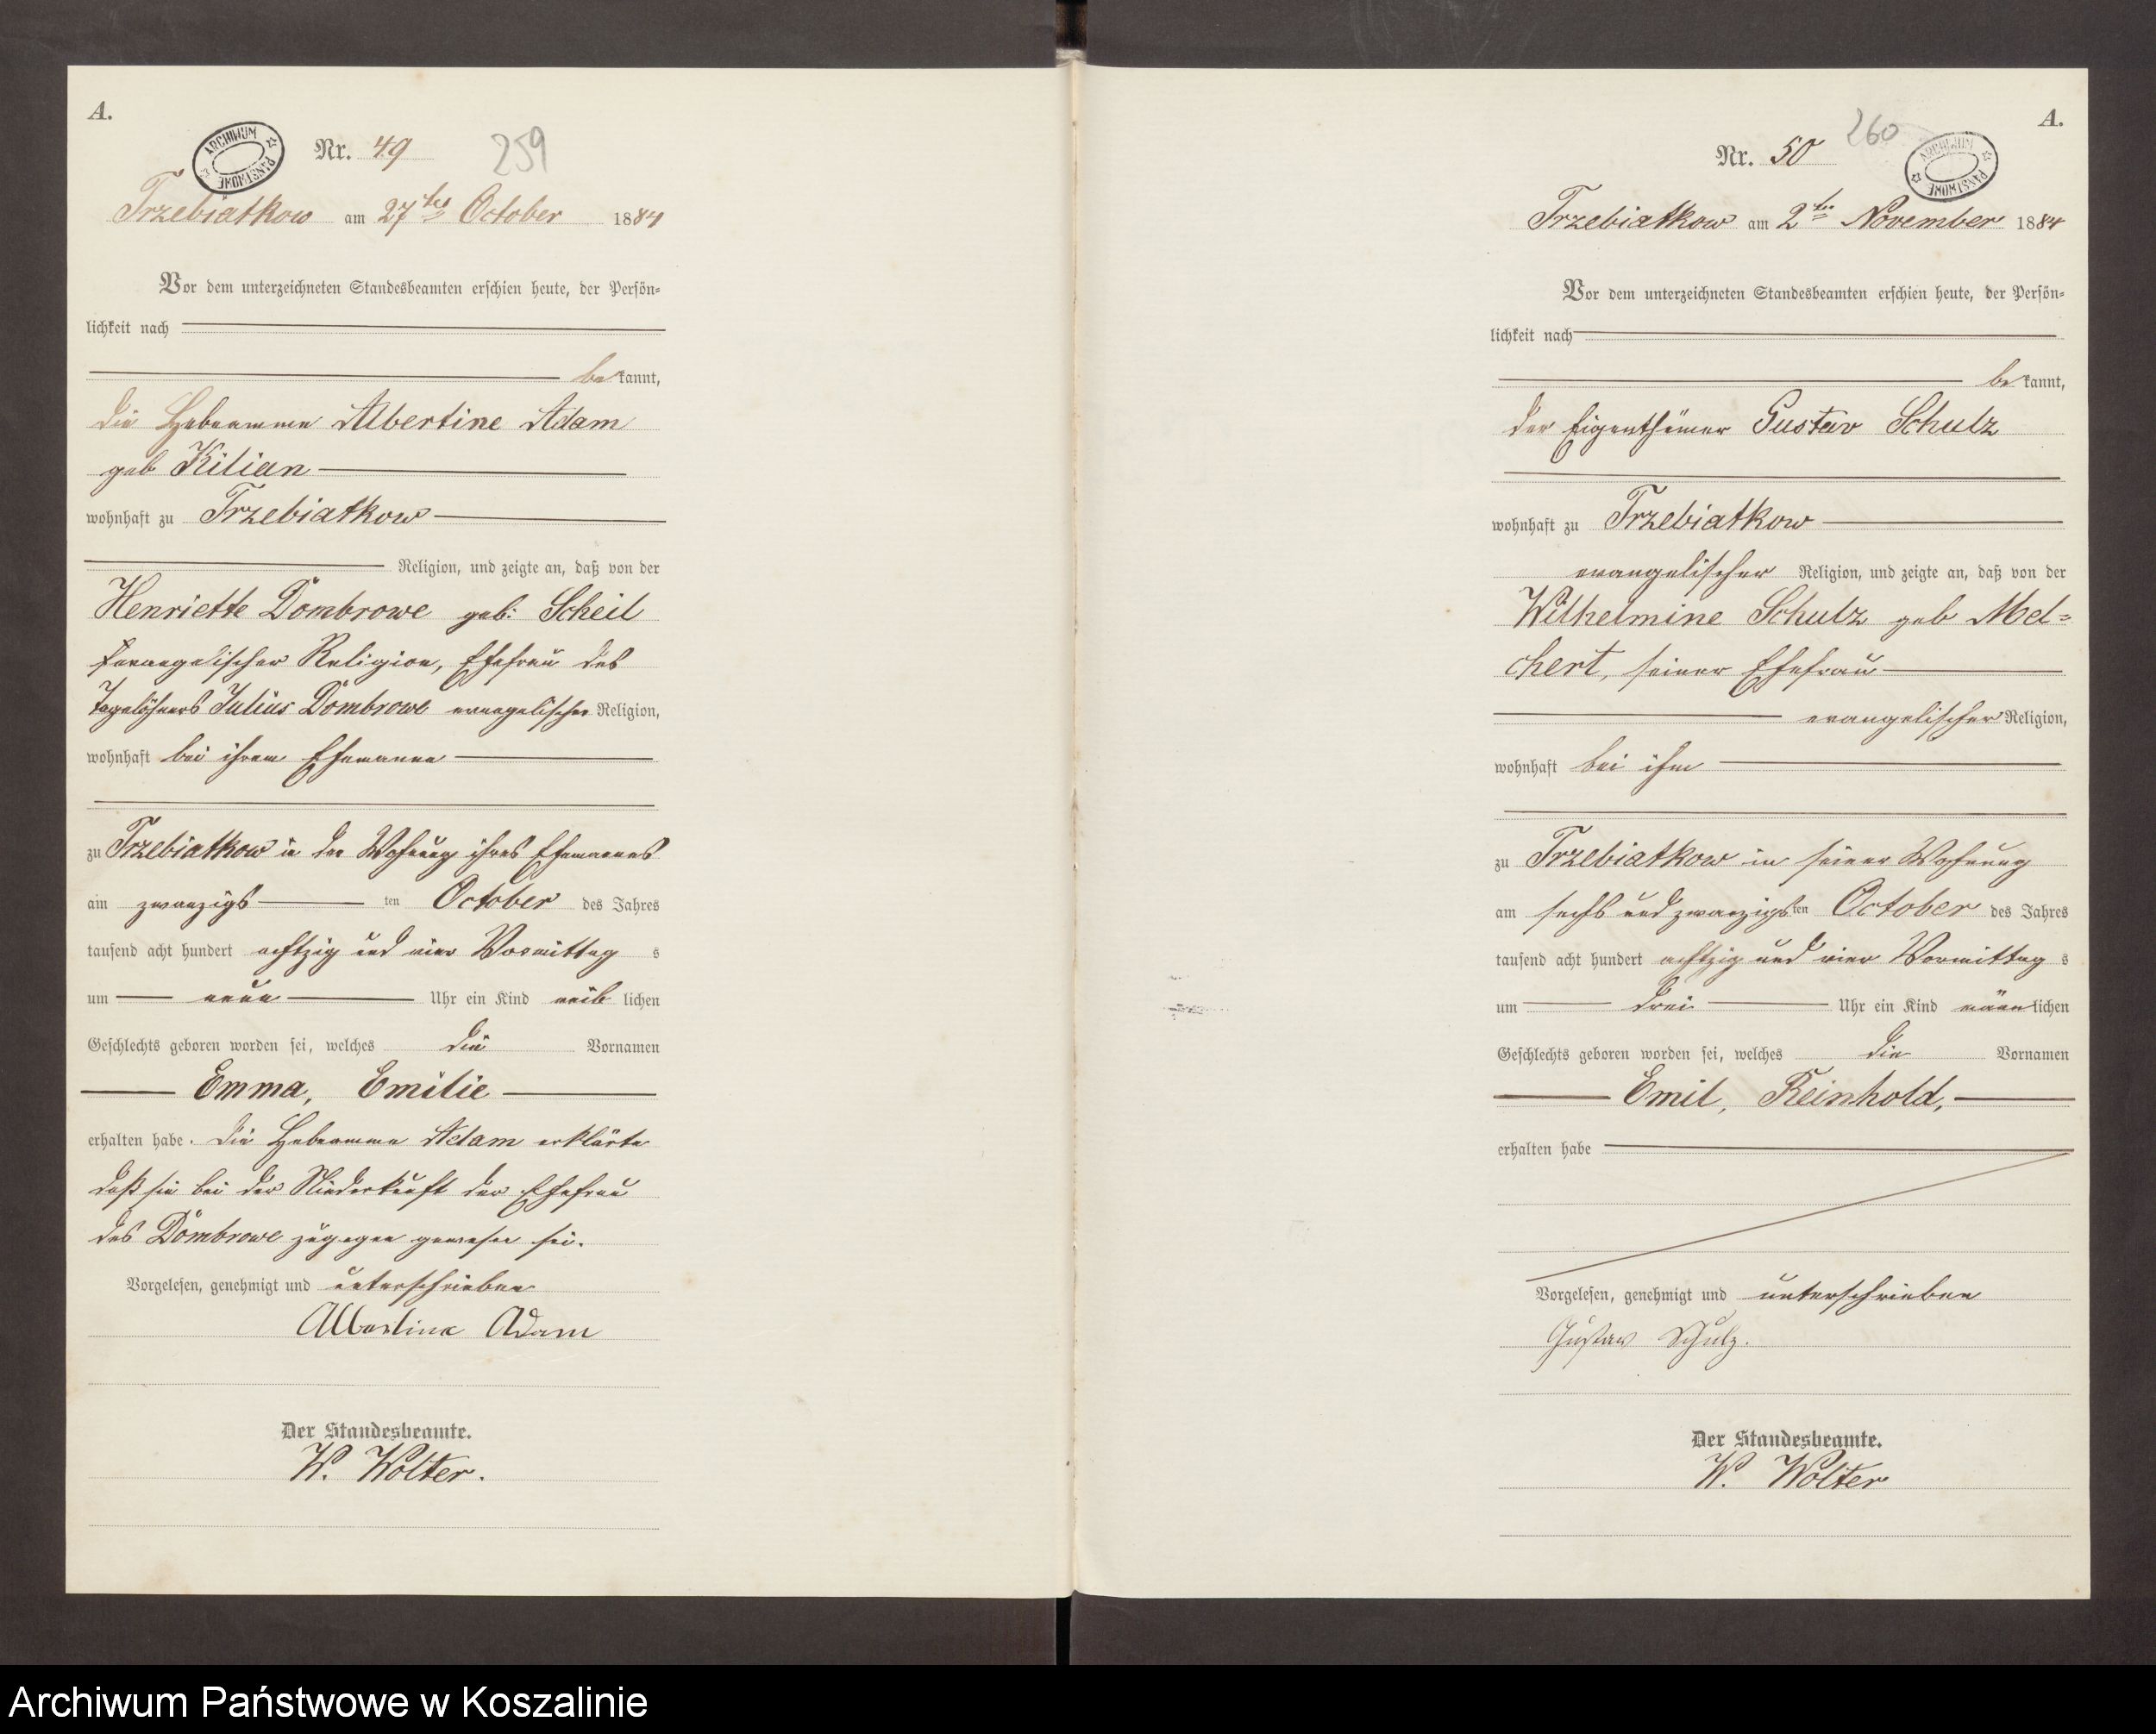 A.
ARCHIWUM PAŃSTWOWE
Nr. 49
259
Trzebiatkow am 27ten October 1884
Vor dem unterzeichneten Standesbeamten erschien heute, der Persön=
lichkeit nach
bekannt,
die Hebeamme Albertine Adam
geb Kilian
wohnhaft zu Trzebiatkow
Religion, und zeigte an, daß von der
Henriette Dombrowe geb: Scheil
evangelischer Religion, Ehefrau des
Tagelöhners Julius Dombrowe evangelischer Religion,
wohnhaft bei ihrem Ehemanne
zu Trzebiatkow in der Wohnung ihres Ehemannes
am zwanzigsten October des Jahres
tausend acht hundert achtzig und vier Vormittags
um neun Uhr ein Kind weiblichen
Geschlechts geboren worden sei, welches die Vornamen
Emma, Emilie
erhalten habe. Die Hebeamme Adam erklärte
daß sie bei der Niederkunft der Ehefrau
des Dombrowe zugegen gewesen sei.
Vorgelesen, genehmigt und unterschrieben
Albertine Adam
Der Standesbeamte.
W. Wolter.
A.
260
ARCHIWUM PAŃSTWOWE
Nr. 50
Trzebiatkow am 2ten November 1884
Vor dem unterzeichneten Standesbeamten erschien heute, der Persön=
lichkeit nach
bekannt,
der Eigenthümer Gustav Schulz
wohnhaft zu Trzebiatkow
evangelischer Religion, und zeigte an, daß von der
Wilhelmine Schulz geb Mel=
chert, seiner Ehefrau
evangelischer Religion,
wohnhaft bei ihm
zu Trzebiatkow in seiner Wohnung
am sechs und zwanzigsten October des Jahres
tausend acht hundert achtzig und vier Vormittags
um drei Uhr ein Kind männlichen
Geschlechts geboren worden sei, welches die Vornamen
Emil, Reinhold,
erhalten habe
Vorgelesen, genehmigt und unterschrieben
Gustav Schulz.
Der Standesbeamte.
W. Wolter
Archiwum Państwowe w Koszalinie